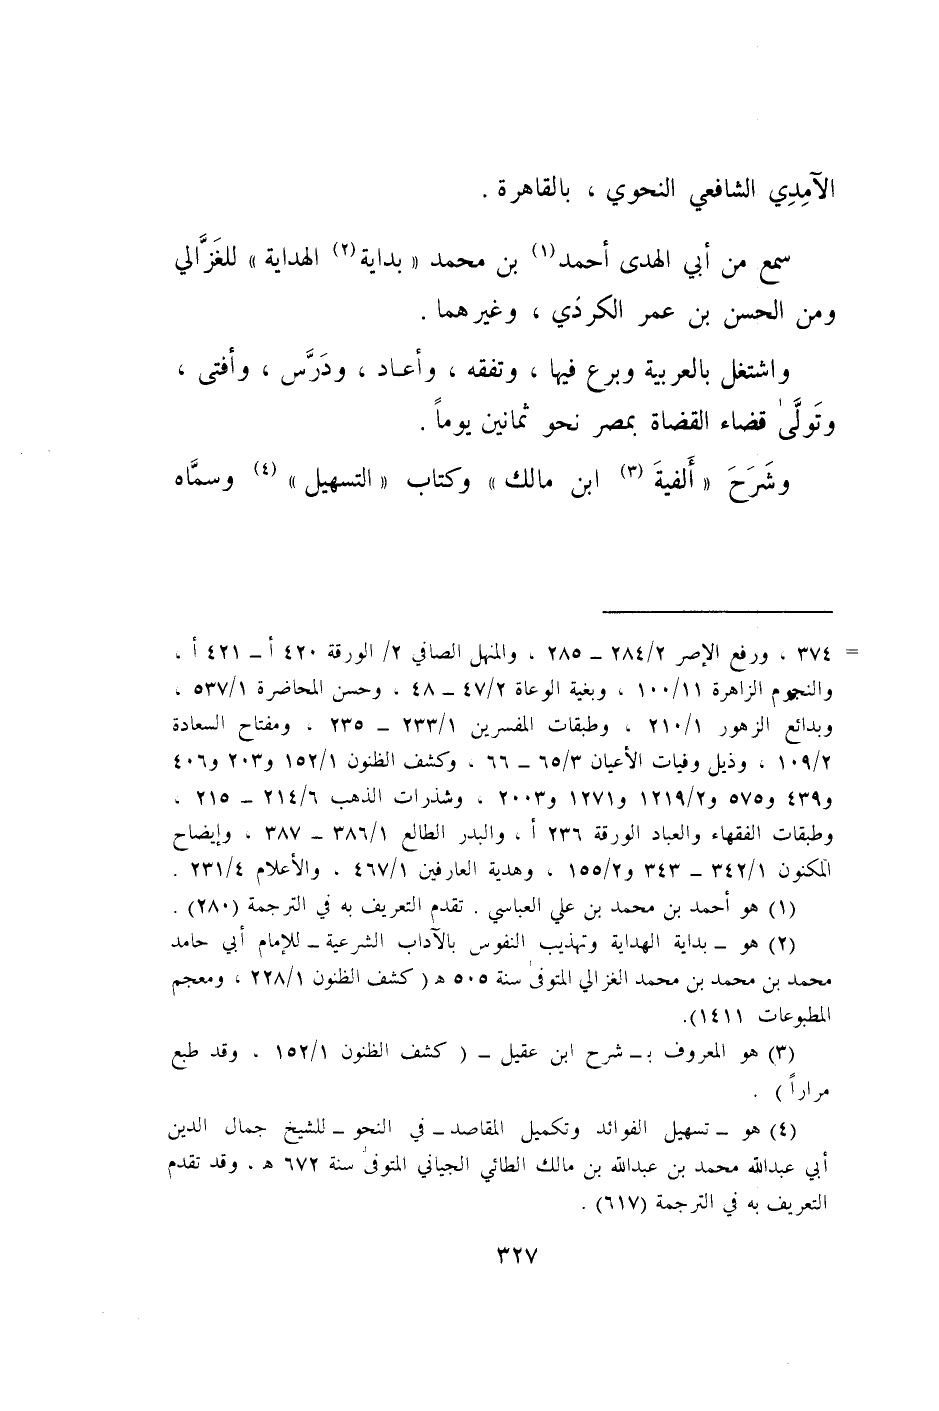 الآمِدِي الشافعي النحوي ، بالقاهرة .
سمع من أبي الهدى أحمد(١) بن محمد « بداية(٢) الهداية » للغَزَّالي
ومن الحسن بن عمر الكردَي ، وغيرهما .
واشتغل بالعربية وبرع فيها ، وتفقه ، وأعاد ، ودَرَّس ، وأفتى ،
وتَولَّىٰ قضاء القضاة بمصر نحو ثمانين يوماً .
وشَرَحَ « أَلفيةَ (٣) ابن مالك» وكتاب «التسهيل» (٤) وسمَّاه
= ٣٧٤ ، ورفع الإصر ٢٨٤/٢ ــ ٢٨٥ ، والمنهل الصافي ٢/ الورقة ٤٢٠ أ ــ ٤٢١ أ ،
والنجوم الزاهرة ١٠٠/١١ ، وبغية الوعاة ٤٧/٢ ــ ٤٨ ، وحسن المحاضرة ٥٣٧/١ ،
وبدائع الزهور ٢١٠/١ ، وطبقات المفسرين ٢٣٣/١ ــ ٢٣٥ ، ومفتاح السعادة
١٠٩/٢ ، وذيل وفيات الأعيان ٦٥/٣ ــ ٦٦ ، وكشف الظنون ١٥٢/١ و٢٠٣ و٤٠٦
و٤٣٩ و٥٧٥ و١٢١٩/٢ و١٢٧١ و٢٠٠٣ ، وشذرات الذهب ٢١٤/٦ ــ ٢١٥ ،
وطبقات الفقهاء والعباد الورقة ٢٣٦ أ ، والبدر الطالع ٣٨٦/١ ــ ٣٨٧ ، وإيضاح
المكنون ٣٤٢/١ ــ ٣٤٣ و١٥٥/٢ ، وهدية العارفين ٤٦٧/١ ، والأعلام ٢٣١/٤ .
(١) هو أحمد بن محمد بن علي العباسي . تقدم التعريف به في الترجمة (٢٨٠) .
(٢) هو ــ بداية الهداية وتهذيب النفوس بالآداب الشرعية ــ للإمام أبي حامد
محمد بن محمد بن محمد الغزالي المتوفىٰ سنة ٥٠٥ هـ ( كشف الظنون ٢٢٨/١ ، ومعجم
المطبوعات ١٤١١).
(٣) هو المعروف بـ ــ شرح ابن عقيل ــ ( كشف الظنون ١٥٢/١ ، وقد طبع
مراراً ) .
(٤) هو ــ تسهيل الفوائد وتكميل المقاصد ــ في النحو ــ للشيخ جمال الدين
أبي عبدالله محمد بن عبدالله بن مالك الطائي الجياني المتوفىٰ سنة ٦٧٢ هـ . وقد تقدم
التعريف به في الترجمة (٦١٧) .
٣٢٧